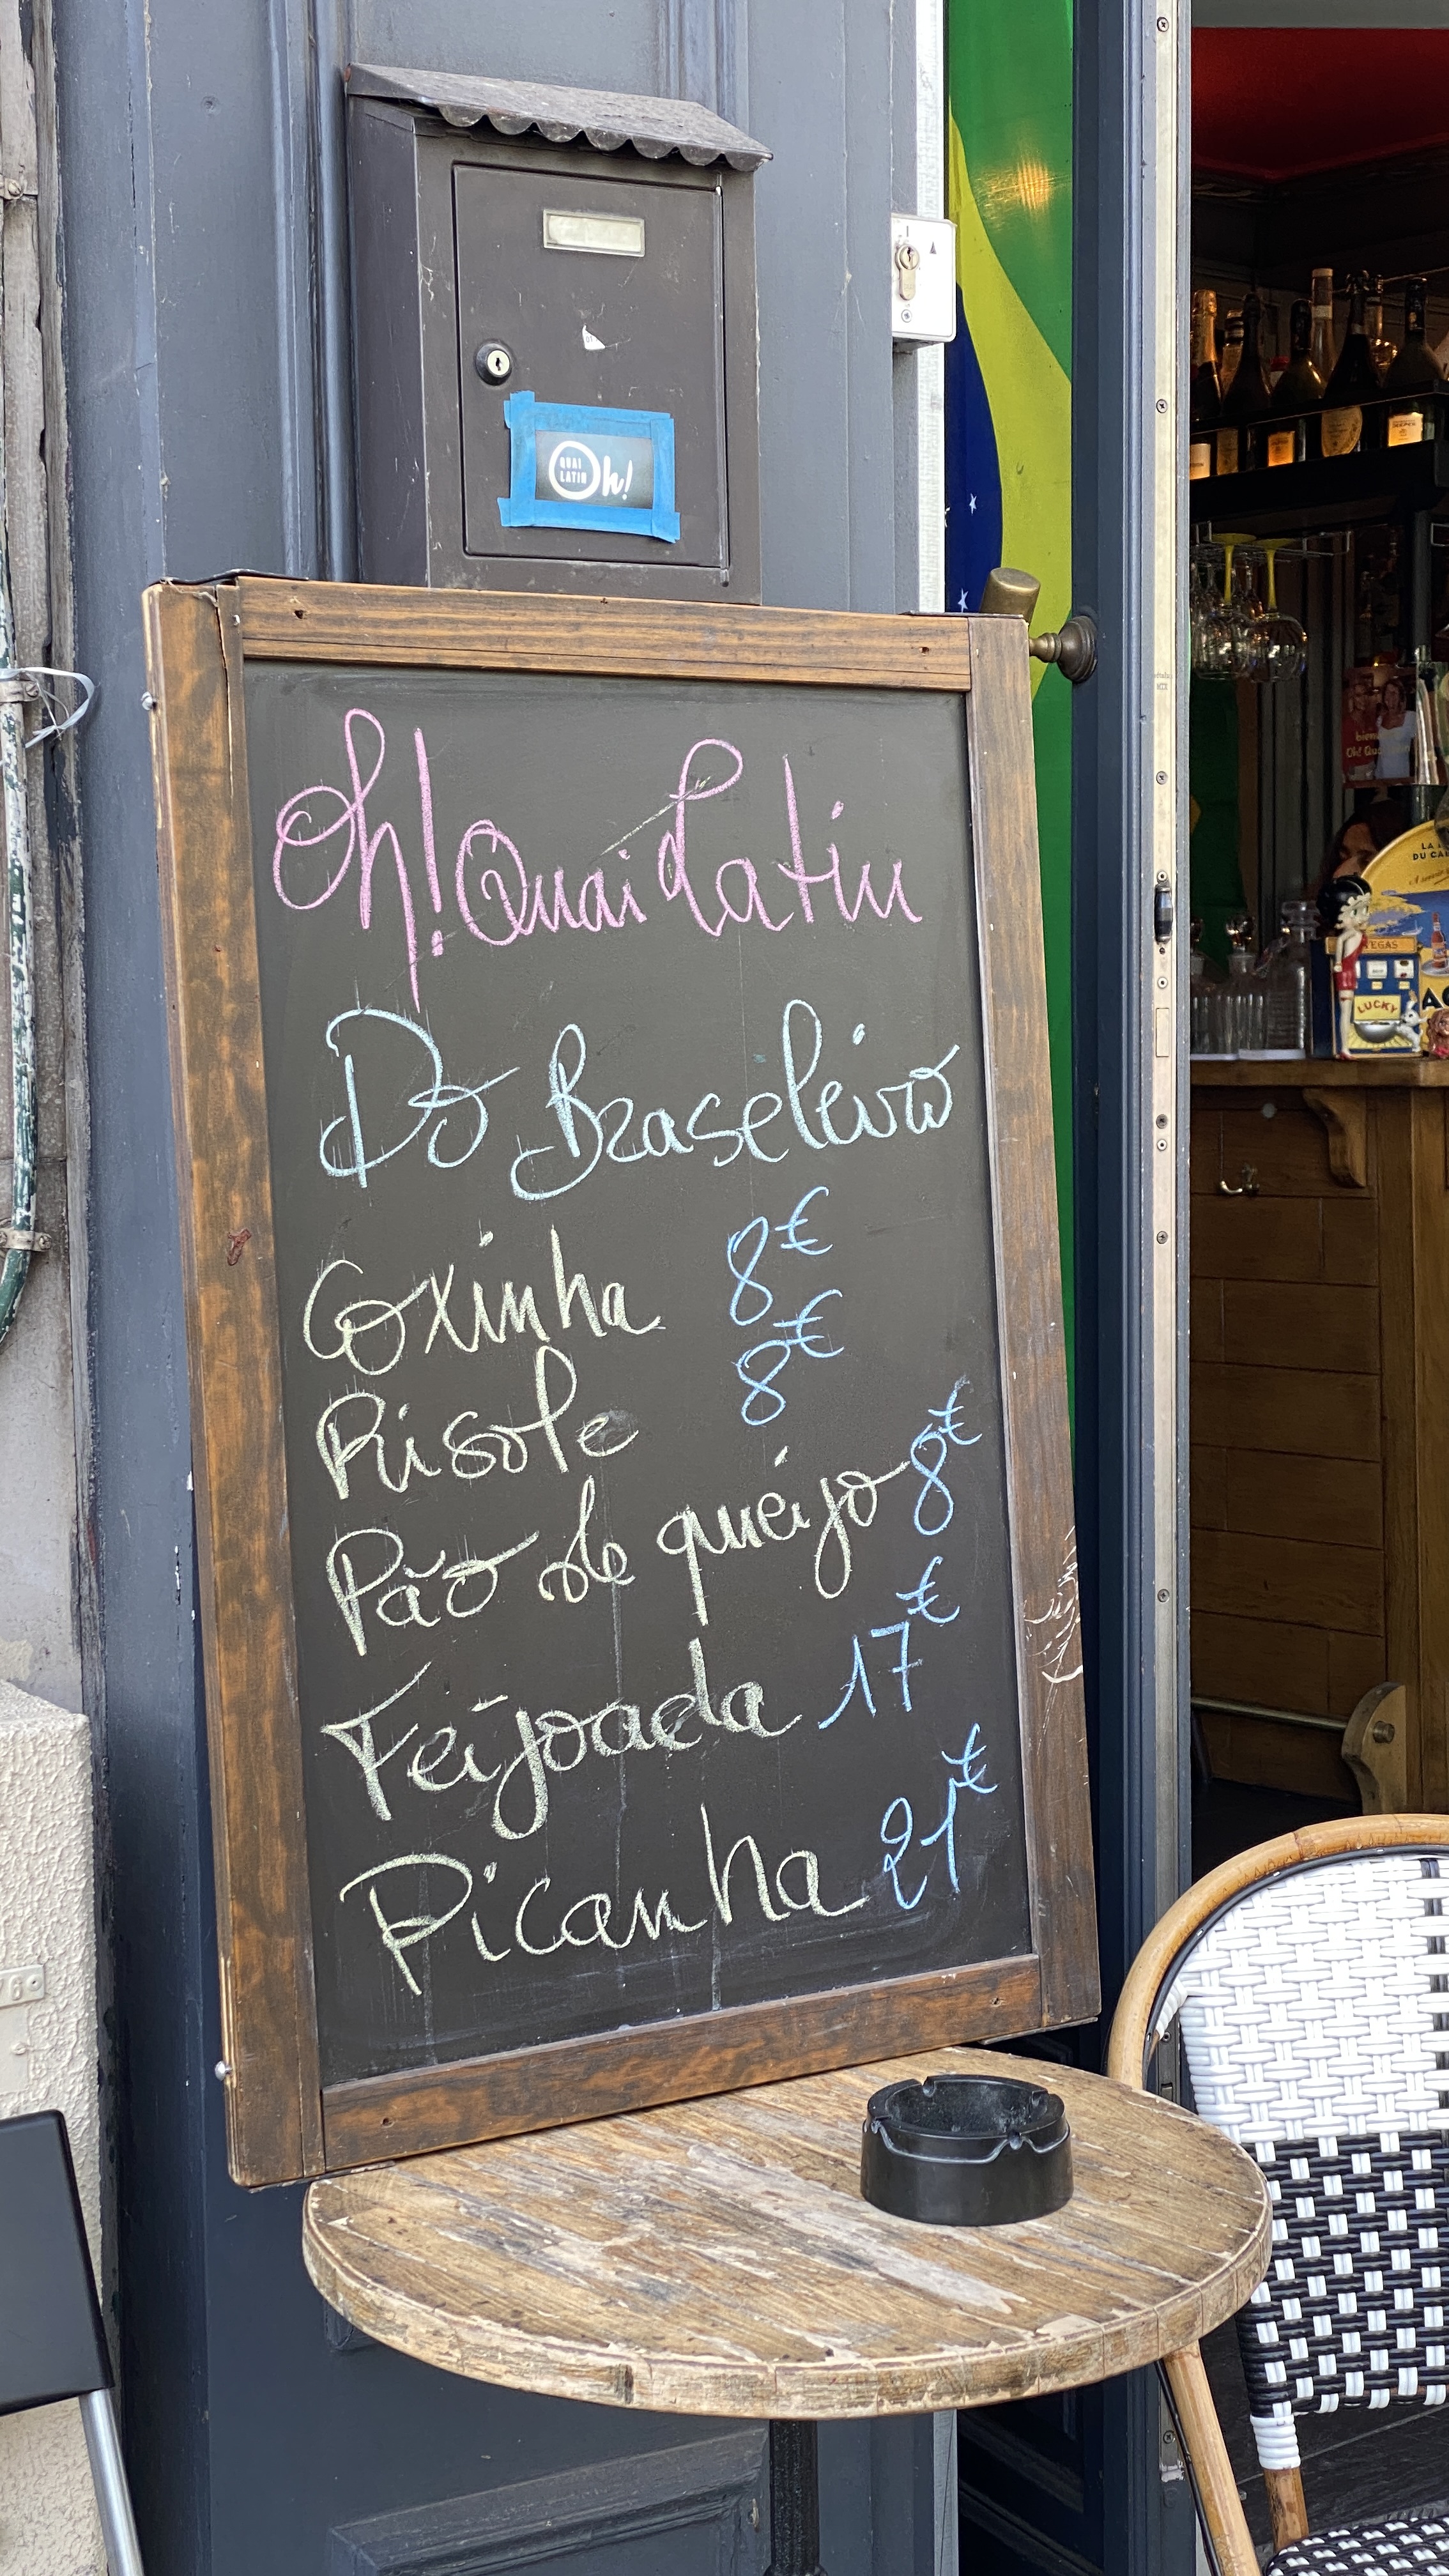 QUAI
LATIN
Oh!
Oh! Quai Latin
Do Braseleiro
Coxinha 8€
Risole 8€
Pão de queijo 8€
Feijoada 17€
Picanha 21€
LA
DU CA
VEGAS
LUCKY